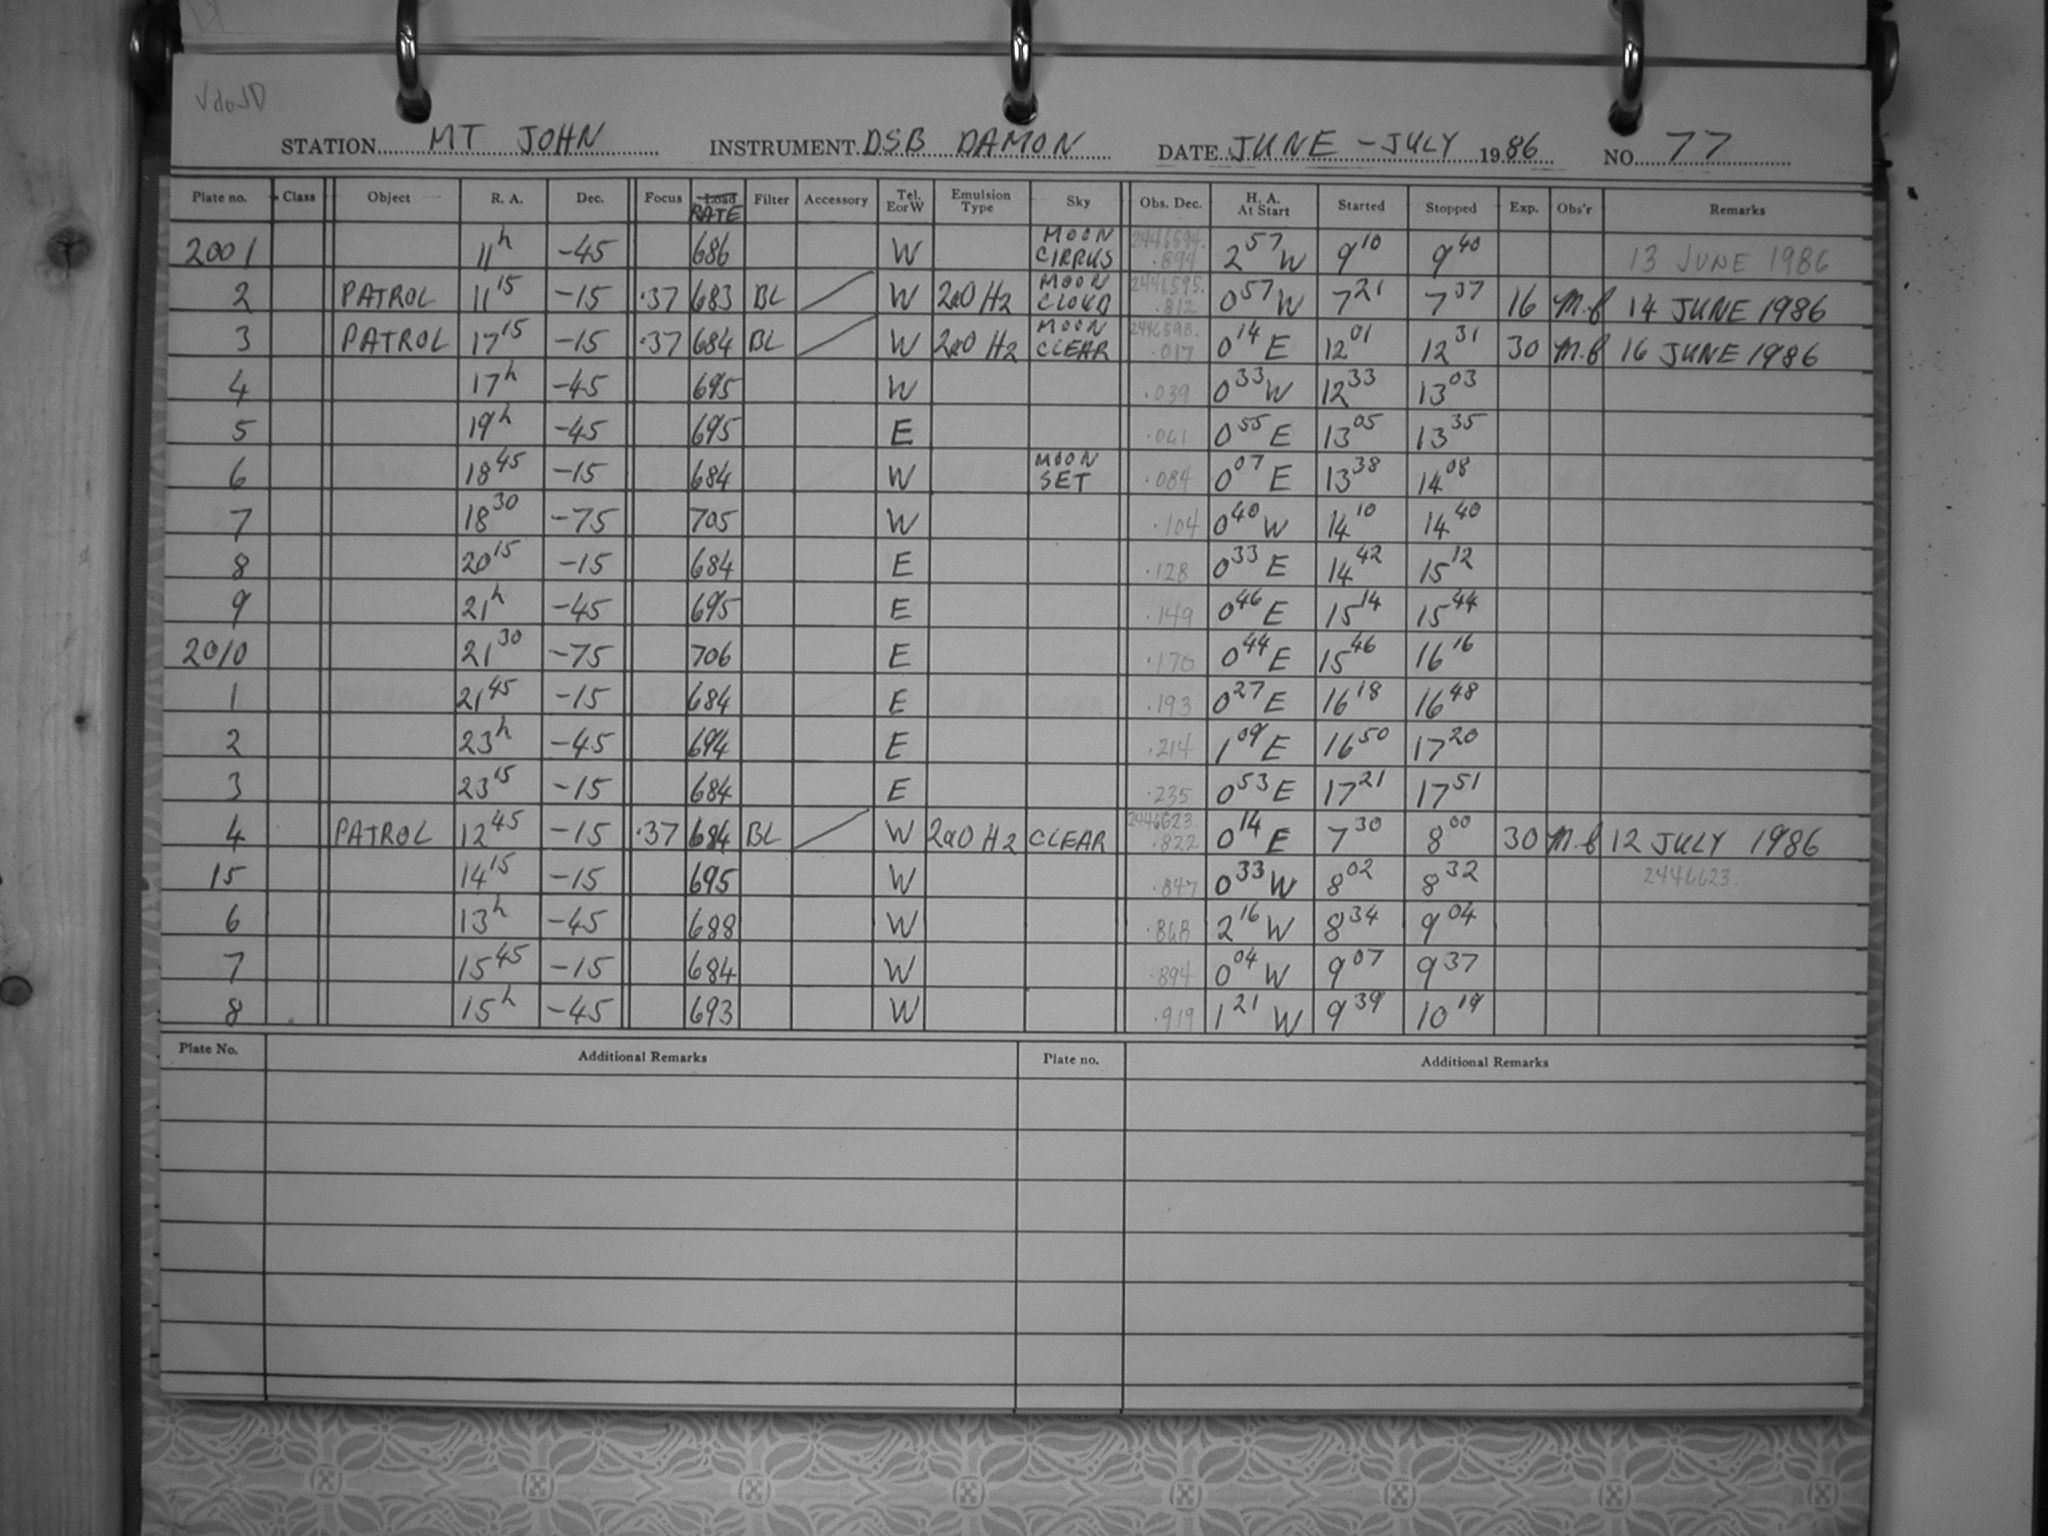 VdoJD
STATION MT JOHN INSTRUMENT DSB DAMON DATE JUNE - JULY 1986 NO. 77
Plate no. Class Object R. A. Dec. Focus Load RATE Filter Accessory Tel. E or W Emulsion Type Sky Obs. Dec. H. A. At Start Started Stopped Exp. Obs'r Remarks
2001 11h -45 686 W MOON CIRRUS 2446594. .894 2 57 W 9 10 9 40 13 JUNE 1986
2 PATROL 11 15 -15 .37 683 BL W 2aO H2 MOON CLOUD 2446595. .812 0 57 W 7 21 7 37 16 M.B 14 JUNE 1986
3 PATROL 17 15 -15 .37 684 BL W 2aO H2 MOON CLEAR 2446598. .017 0 14 E 12 01 12 31 30 M.B 16 JUNE 1986
4 17h -45 695 W .039 0 33 W 12 33 13 03
5 19h -45 695 E .061 0 55 E 13 05 13 35
6 18 45 -15 684 W MOON SET .084 0 07 E 13 38 14 08
7 18 30 -75 705 W .104 0 40 W 14 10 14 40
8 20 15 -15 684 E .128 0 33 E 14 42 15 12
9 21h -45 695 E .149 0 46 E 15 14 15 44
2010 21 30 -75 706 E .170 0 44 E 15 46 16 16
1 21 45 -15 684 E .193 0 27 E 16 18 16 48
2 23h -45 694 E .214 1 09 E 16 50 17 20
3 23 15 -15 684 E .235 0 53 E 17 21 17 51
4 PATROL 12 45 -15 .37 684 BL W 2aO H2 CLEAR 2446623. .822 0 14 E 7 30 8 00 30 M.B 12 JULY 1986
15 14 15 -15 695 W .847 0 33 W 8 02 8 32 2446623.
6 13h -45 688 W .868 2 16 W 8 34 9 04
7 15 45 -15 684 W .894 0 04 W 9 07 9 37
8 15h -45 693 W .919 1 21 W 9 39 10 19
Plate No. Additional Remarks Plate no. Additional Remarks